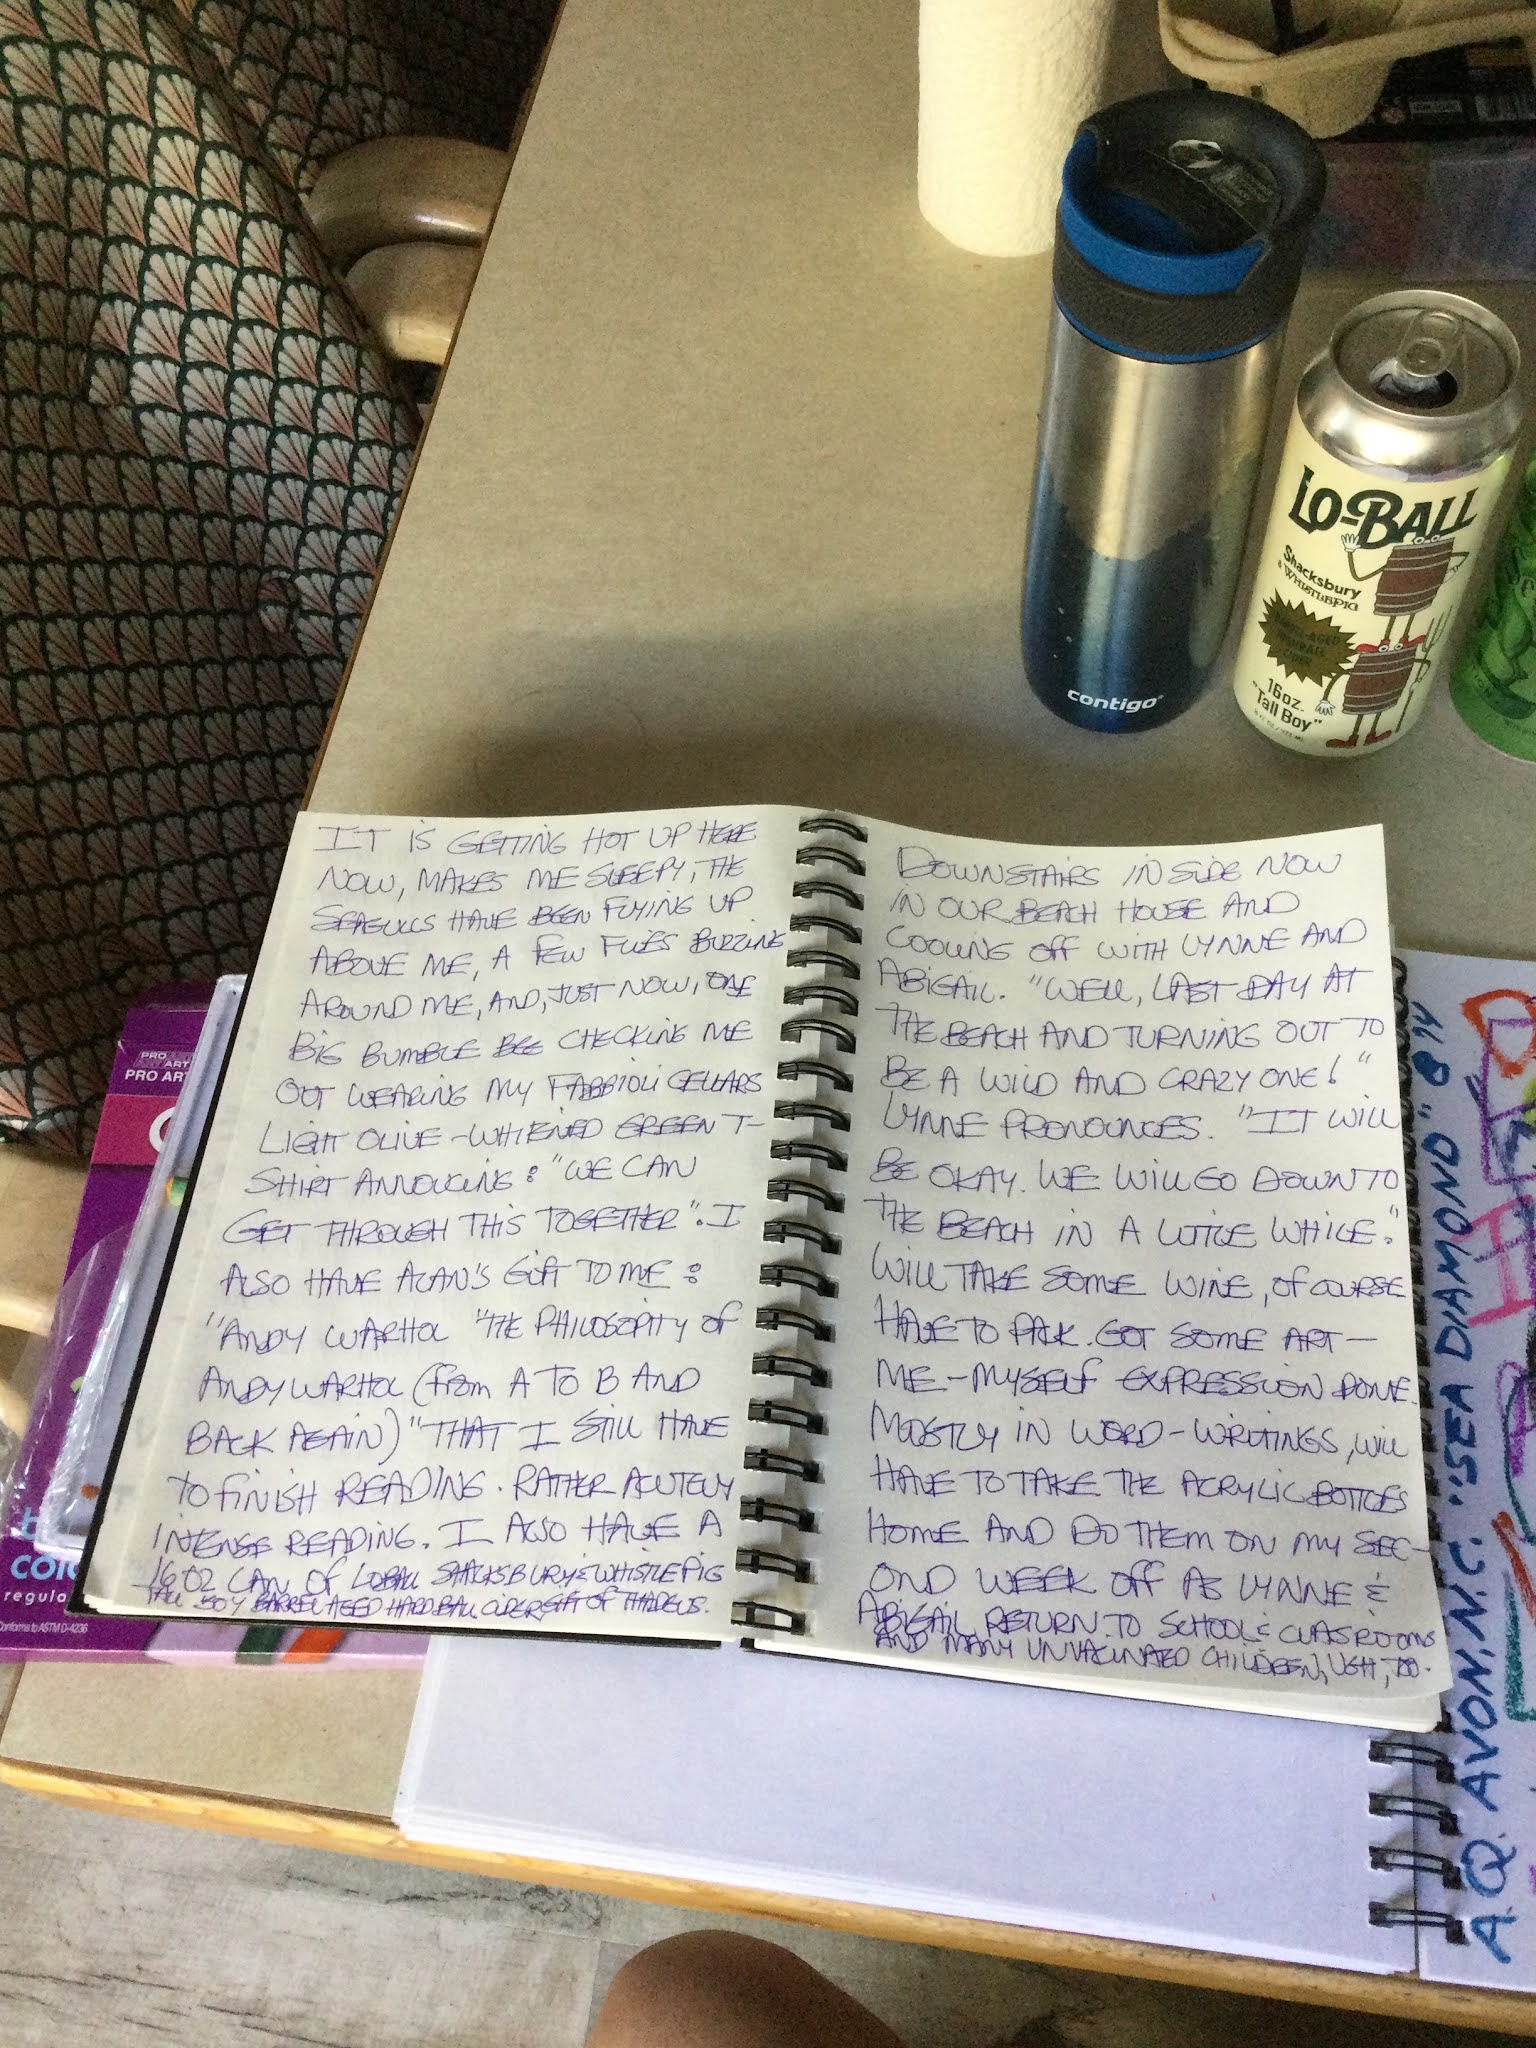 LO-BALL
Shacksbury
& WHISTLEPIG
16oz.
"Tall Boy"
contigo
IT IS GETTING HOT UP HERE
NOW, MAKES ME SLEEPY, THE
SEAGULLS HAVE BEEN FLYING UP
ABOVE ME, A FEW FLIES BUZZING
AROUND ME, AND, JUST NOW, ONE
BIG BUMBLE BEE CHECKING ME
OUT WEARING MY FABBIOLI CELLARS
LIGHT OLIVE-WHITENED GREEN T-
SHIRT ANNOUCING: "WE CAN
GET THROUGH THIS TOGETHER". I
ALSO HAVE ALAN'S GIFT TO ME:
"ANDY WARHOL "THE PHILOSOPHY OF
ANDY WARHOL (from A TO B AND
BACK AGAIN)" THAT I STILL HAVE
TO FINISH READING. RATHER ACUTELY
INTENSE READING. I ALSO HAVE A
16 OZ CAN OF LOBALL SHACKSBURY & WHISTLEPIG
TALL BOY BARREL AGED HARD BALL CIDER GIFT OF THADEUS.
DOWNSTAIRS INSIDE NOW
IN OUR BEACH HOUSE AND
COOLING OFF WITH LYNNE AND
ABIGAIL. "WELL, LAST DAY AT
THE BEACH AND TURNING OUT TO
BE A WILD AND CRAZY ONE!"
LYNNE PRONOUNCES. "IT WILL
BE OKAY. WE WILL GO DOWN TO
THE BEACH IN A LITTLE WHILE."
WILL TAKE SOME WINE, OF COURSE
HAVE TO PACK. GOT SOME ART-
ME-MYSELF EXPRESSION DONE
MOSTLY IN WORD-WRITINGS, WILL
HAVE TO TAKE THE ACRYLIC BOTTLES
HOME AND DO THEM ON MY SEC-
OND WEEK OFF AS LYNNE &
ABIGAIL RETURN TO SCHOOL & CLASSROOMS
AND MANY UNVACCINATED CHILDREN, UGH, TOO.
A.Q. AVON, N.C. "SEA DIAMOND" 8/14
PRO ART
PRO AR
regula
Conforms to ASTM D-4236